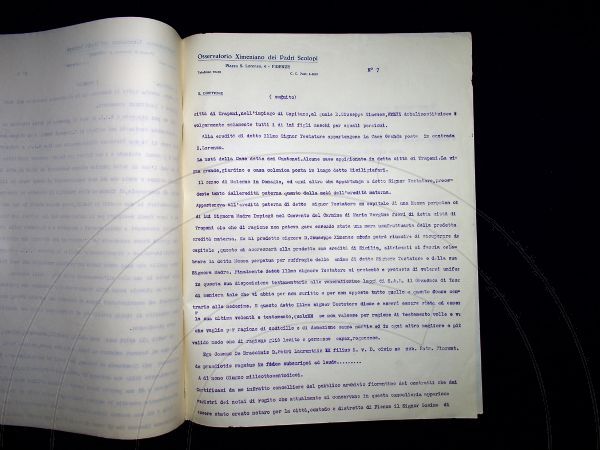 Osservatorio Ximeniano dei Padri Scolopi
Piazza S. Lorenzo, 6 - FIRENZE
N° 7
( seguito)
città di Trapani, nell'impiego di Capitano, al quale D. Giuseppe Ximenes,
volgarmente solamente tutti i di lui figli maschi per eguali porzioni.
Alla eredità di detto Illmo Signor Testatore appartengono in Case Grande poste in contrada
S. Lorenzo.
La metà della Casa detta dei Cantoni. Alcune case appigionate in detta città di Trapani. La vi
gna grande, giardino e casa colonica posta in luogo detto
Il censo di Salerno in Dogania, ed ogni altro che appartenga a detto Signor Testatore, prove-
niente tanto dall'eredità paterna quanto della metà dell'eredità materna.
Apparteneva all'eredità paterna di detto signor Testatore un capitale di una Messa perpetua di
lui Signora Madre Impiegò nel Convento del Carmine di Maria Vergine fuori di detta città di
Trapani che che di ragione non poteva gare essendo stata una mera usufruttuaria della predetta
eredità materna. Se al predetto signore D. Giuseppe Ximenes potrà riuscire di recuperare detto
capitale, questo si accrescerà alla predetta sua eredità di Sicilia, altrimenti si faccia cele-
brare in detta Messa perpetua per suffragio delle anime di detto Signor Testatore e della sua
Signora Madre. Finalmente detto Illmo signore Testatore si protestò e protesta di volersi unifor
in questa sua disposizione testamentaria alle veneratissime leggi di S.A.R. il Granduca di Tosc
di maniera tale che vi abbia per non scritto e per non apposto tutto quello che questo fosse con-
trario alle medesime. E questo detto Illmo signor Testatore disse e asserì essere stata ed esser
la sua ultima volontà e testamento, se non valesse per ragione di testamento volle e vu
che vaglia per ragione di codicillo e di donazione causa mortis ed in ogni altro migliore e più
valido modo che di ragione più lecito e permesso
Ego Cosmus De Braccinis D. Petri Laurentii filius I. V. D. civis ac pub. Notr. Florent.
de praedictis rogatus in fidem subscripsi ad laude.........
A dì nove Giugno milleottocentodieci.
Certificasi da me infratto cancelliere del pubblico archivio fiorentino dei contratti che dai
registri dei notai di rogito che attualmente si conservano in questa cancelleria apparisce
essere stato creato notaro per la città, contado e distretto di Firenze il Signor Cosimo di